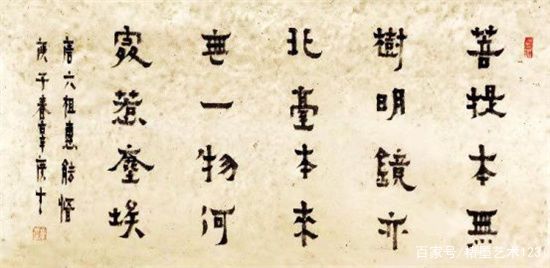 菩提本無
樹明鏡亦
非臺本來
無一物何
處惹塵埃
唐六祖惠能偈
庚子春
百家号/翰墨艺术123